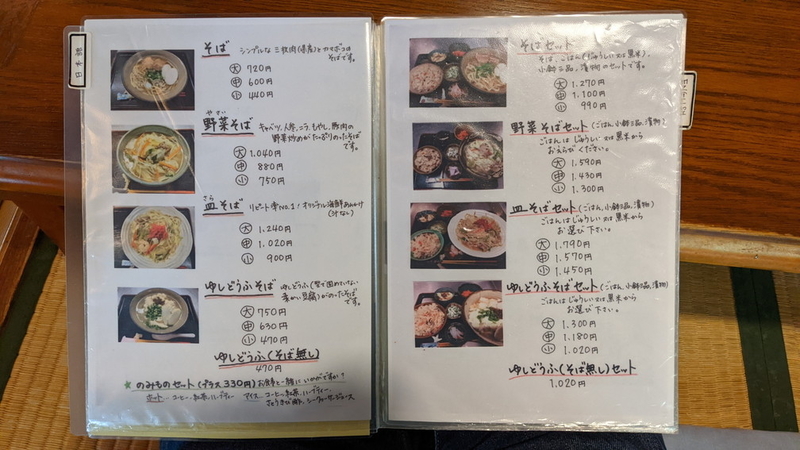 日本語
そば シンプルな三枚肉(県産)とカマボコの
そばです。
大 720円
中 600円
小 440円
やさい
野菜そば キャベツ、人参、ニラ、もやし、豚肉の
野菜炒めがたっぷりのったそば
です。
大 1.040円
中 880円
小 750円
さら
皿そば リピート率No.1! オリジナル海鮮あんかけ
(汁なし)
大 1.240円
中 1.020円
小 900円
ゆしどうふそば ゆしどうふ(型で固めていない
柔かい豆腐)がのったそば
です。
大 750円
中 630円
小 470円
ゆしどうふ(そば無し)
470円
★のみものセット(プラス330円)お食事と一緒にいかがですか?
ホット… コーヒー、紅茶、ハーブティー アイス… コーヒー、紅茶、ハーブティー、
さとうきび酢、シークヮーサージュース
そばセット
そば、ごはん(じゅうしい又は黒米)、
小鉢三品、漬物のセットです。
大 1.270円
中 1.100円
小 990円
野菜そばセット(ごはん、小鉢三品、漬物)
ごはんはじゅうしい又は黒米から
おえらびください。
大 1.590円
中 1.430円
小 1.300円
皿そばセット(ごはん、小鉢三品、漬物)
ごはんはじゅうしい又は黒米から
お選び下さい。
大 1.790円
中 1.570円
小 1.450円
ゆしどうふそばセット(ごはん、小鉢三品、漬物)
ごはんはじゅうしい又は黒米から
お選び下さい。
大 1.300円
中 1.180円
小 1.020円
ゆしどうふ(そば無し)セット
1.020円